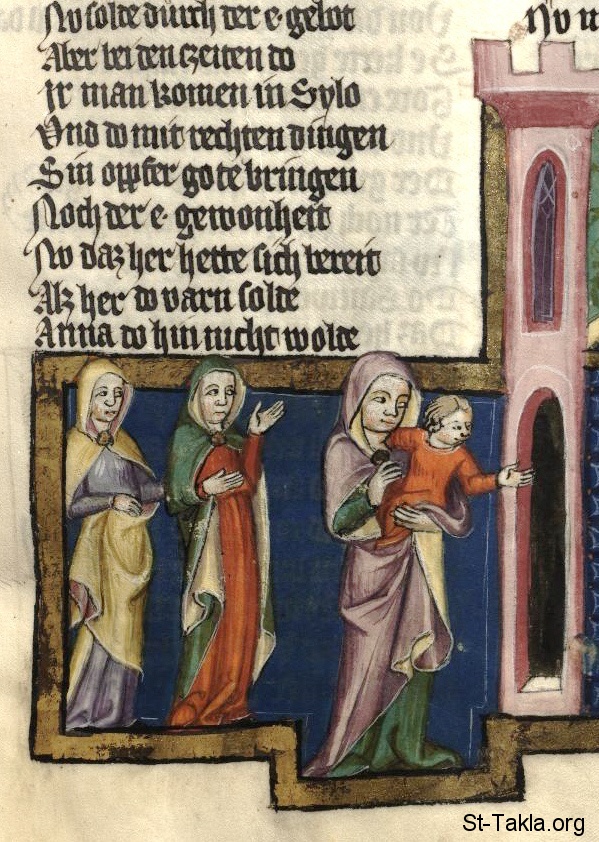 No solde durch der e· gebot
Aber bei den czeiten do
Ir man komen in Sylo
Vnd do mit rechten dingen
Sin oppfer gote bringen
Noch der e· gewonheit
No daz her hette sich bereit
Alz her do varn solde
Anna do hin nicht wolde
No
St-Takla.org